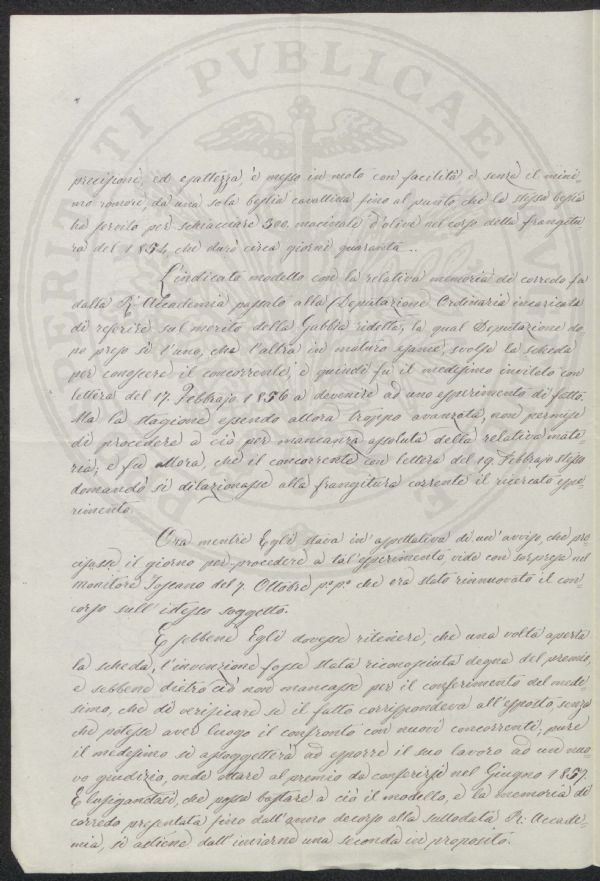 PROSPERITATI PVBLICAE
precisione, ed esattezza, è messo in moto con facilità e senza il mini=
mo romore, da una sola bestia cavallina fino al punto che la stessa bestia
ha servito per schiacciare 300. macinate d'olive nel corso della frangitu
ra del 1854 che durò circa giorni quaranta ..
L'indicato modello con la relativa memoria di corredo fu
dalla R: Accademia passato alla Deputazione Ordinaria incaricata
di referire sul merito della Gabbia ridetta, la qual Deputazione do,
po preso sì l'uno, che l'altra in maturo esame, svolse la scheda
per conoscere il concorrente, e quindi fù il medesimo invitato con
lettera del 17. Febbrajo 1856 a devenire ad uno esperimento di fatto.
Ma la stagione essendo allora troppo avanzata, non permise
di procedere a ciò per mancanza assoluta della relativa mate
ria; e fù allora, che il concorrente con lettera del 19. Febbrajo stesso
domandò si dilazionasse alla frangitura corrente il ricercato espe-
rimento.
Ora mentre Egli stava in aspettativa di un'avviso, che pre
cisasse il giorno per procedere a tal'esperimento, vide con sorpresa nel
Monitore Toscano del 7. Ottobre p.º p.º che era stato rinnuovato il con=
corso sull'istesso soggetto.
E sebbene Egli dovesse ritenere, che una volta aperta
la scheda, l'invenzione fosse stata riconosciuta degna del premio,
e sebbene dietro ciò non mancasse per il conferimento del mede=
simo, che di verificare se il fatto corrispondeva all'esposto senza
che potesse aver luogo il confronto con nuovi concorrenti, pure
il medesimo si assoggetterà ad esporre il suo lavoro ad un nuo=
vo giudizio, onde ottare al premio da conferirsi nel Giugno 1857.
E lusigandosi, che possa bastare a ciò il modello, e la memoria di
corredo presentata fino dall'anno decorso alla sullodata R: Accade=
mia, si astiene dall'inviarne una seconda in proposito.